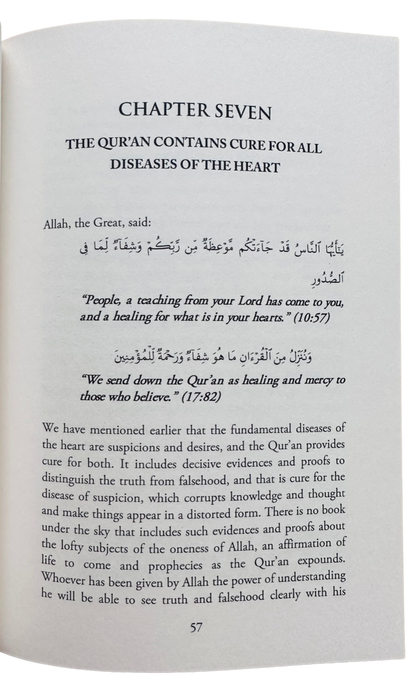 CHAPTER SEVEN
THE QUR'AN CONTAINS CURE FOR ALL
DISEASES OF THE HEART
Allah, the Great, said:
يَـٰٓأَيُّهَا ٱلنَّاسُ قَدۡ جَآءَتۡكُم مَّوۡعِظَةٌ مِّن رَّبِّكُمۡ وَشِفَآءٌ لِّمَا فِى
ٱلصُّدُورِ
"People, a teaching from your Lord has come to you,
and a healing for what is in your hearts." (10:57)
وَنُنَزِّلُ مِنَ ٱلۡقُرۡءَانِ مَا هُوَ شِفَآءٌ وَرَحۡمَةٌ لِّلۡمُؤۡمِنِينَ
"We send down the Qur'an as healing and mercy to
those who believe." (17:82)
We have mentioned earlier that the fundamental diseases of
the heart are suspicions and desires, and the Qur'an provides
cure for both. It includes decisive evidences and proofs to
distinguish the truth from falsehood, and that is cure for the
disease of suspicion, which corrupts knowledge and thought
and make things appear in a distorted form. There is no book
under the sky that includes such evidences and proofs about
the lofty subjects of the oneness of Allah, an affirmation of
life to come and prophecies as the Qur'an expounds.
Whoever has been given by Allah the power of understanding
he will be able to see truth and falsehood clearly with his
57